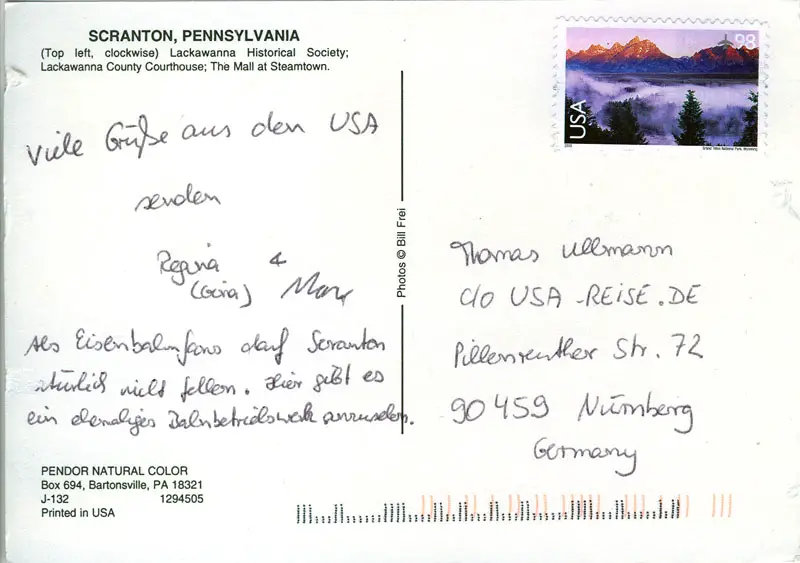 SCRANTON, PENNSYLVANIA
(Top left, clockwise) Lackawanna Historical Society;
Lackawanna County Courthouse; The Mall at Steamtown.
98
USA
Viele Grüße aus den USA
senden
Regina &
(Gina) Max
Als Eisenbahnfans darf Scranton
natürlich nicht fehlen. Hier gibt es
ein ehemaliges Bahnbetriebswerk anzusehen.
Photos © Bill Frei
Thomas Ullmann
c/o USA-REISE.DE
Pillenreuther Str. 72
90459 Nürnberg
Germany
PENDOR NATURAL COLOR
Box 694, Bartonsville, PA 18321
J-132 1294505
Printed in USA